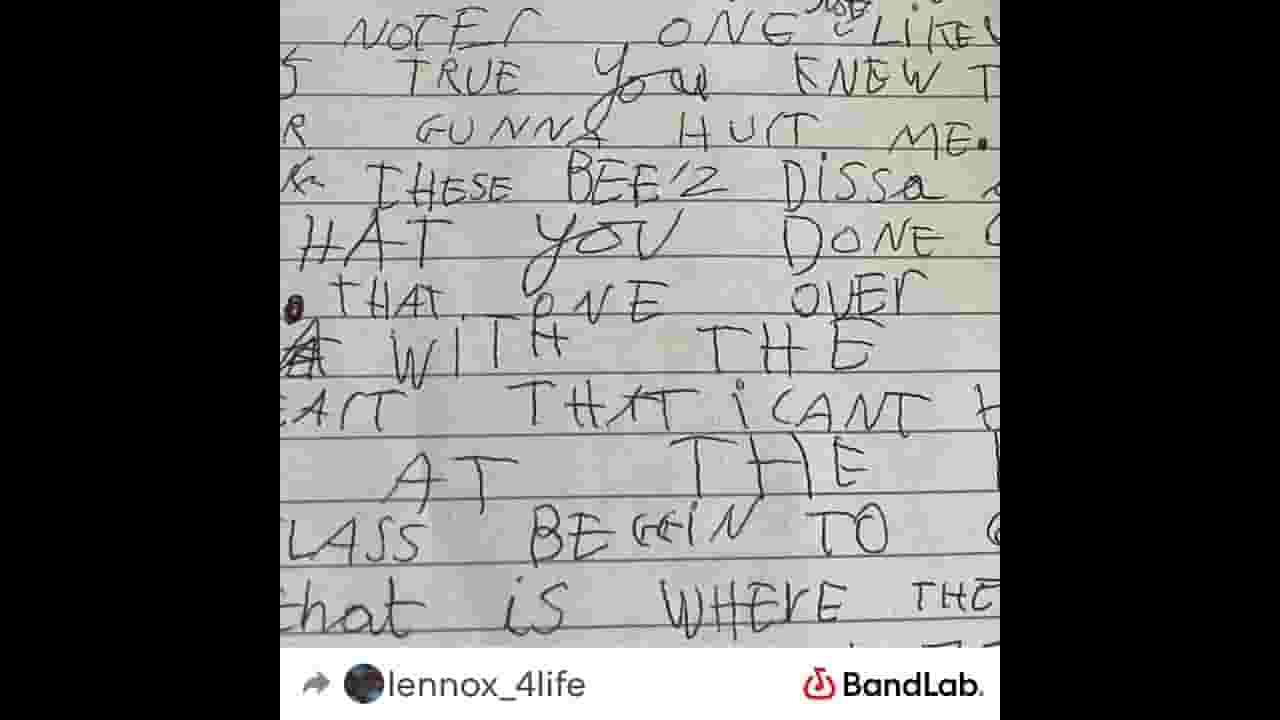 NOTEr ONE LiKE
S TRUE you KNEW T
R GUNNA HUrT ME.
THESE BEE'Z DiSSa
HAT YOU DONE
. THAT ONE OVEr
WITH THE
EArT THAT i CANT
AT THE
LASS BEGGiN TO
that is WHErE THE
lennox_4life BandLab.